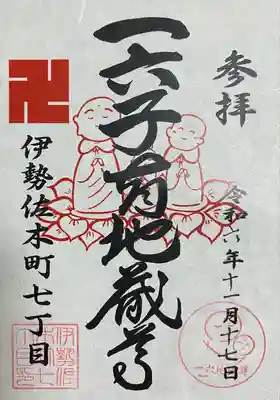 参拝
令和六年十一月十七日
一六子育地蔵尊
卍
伊勢佐木町七丁目